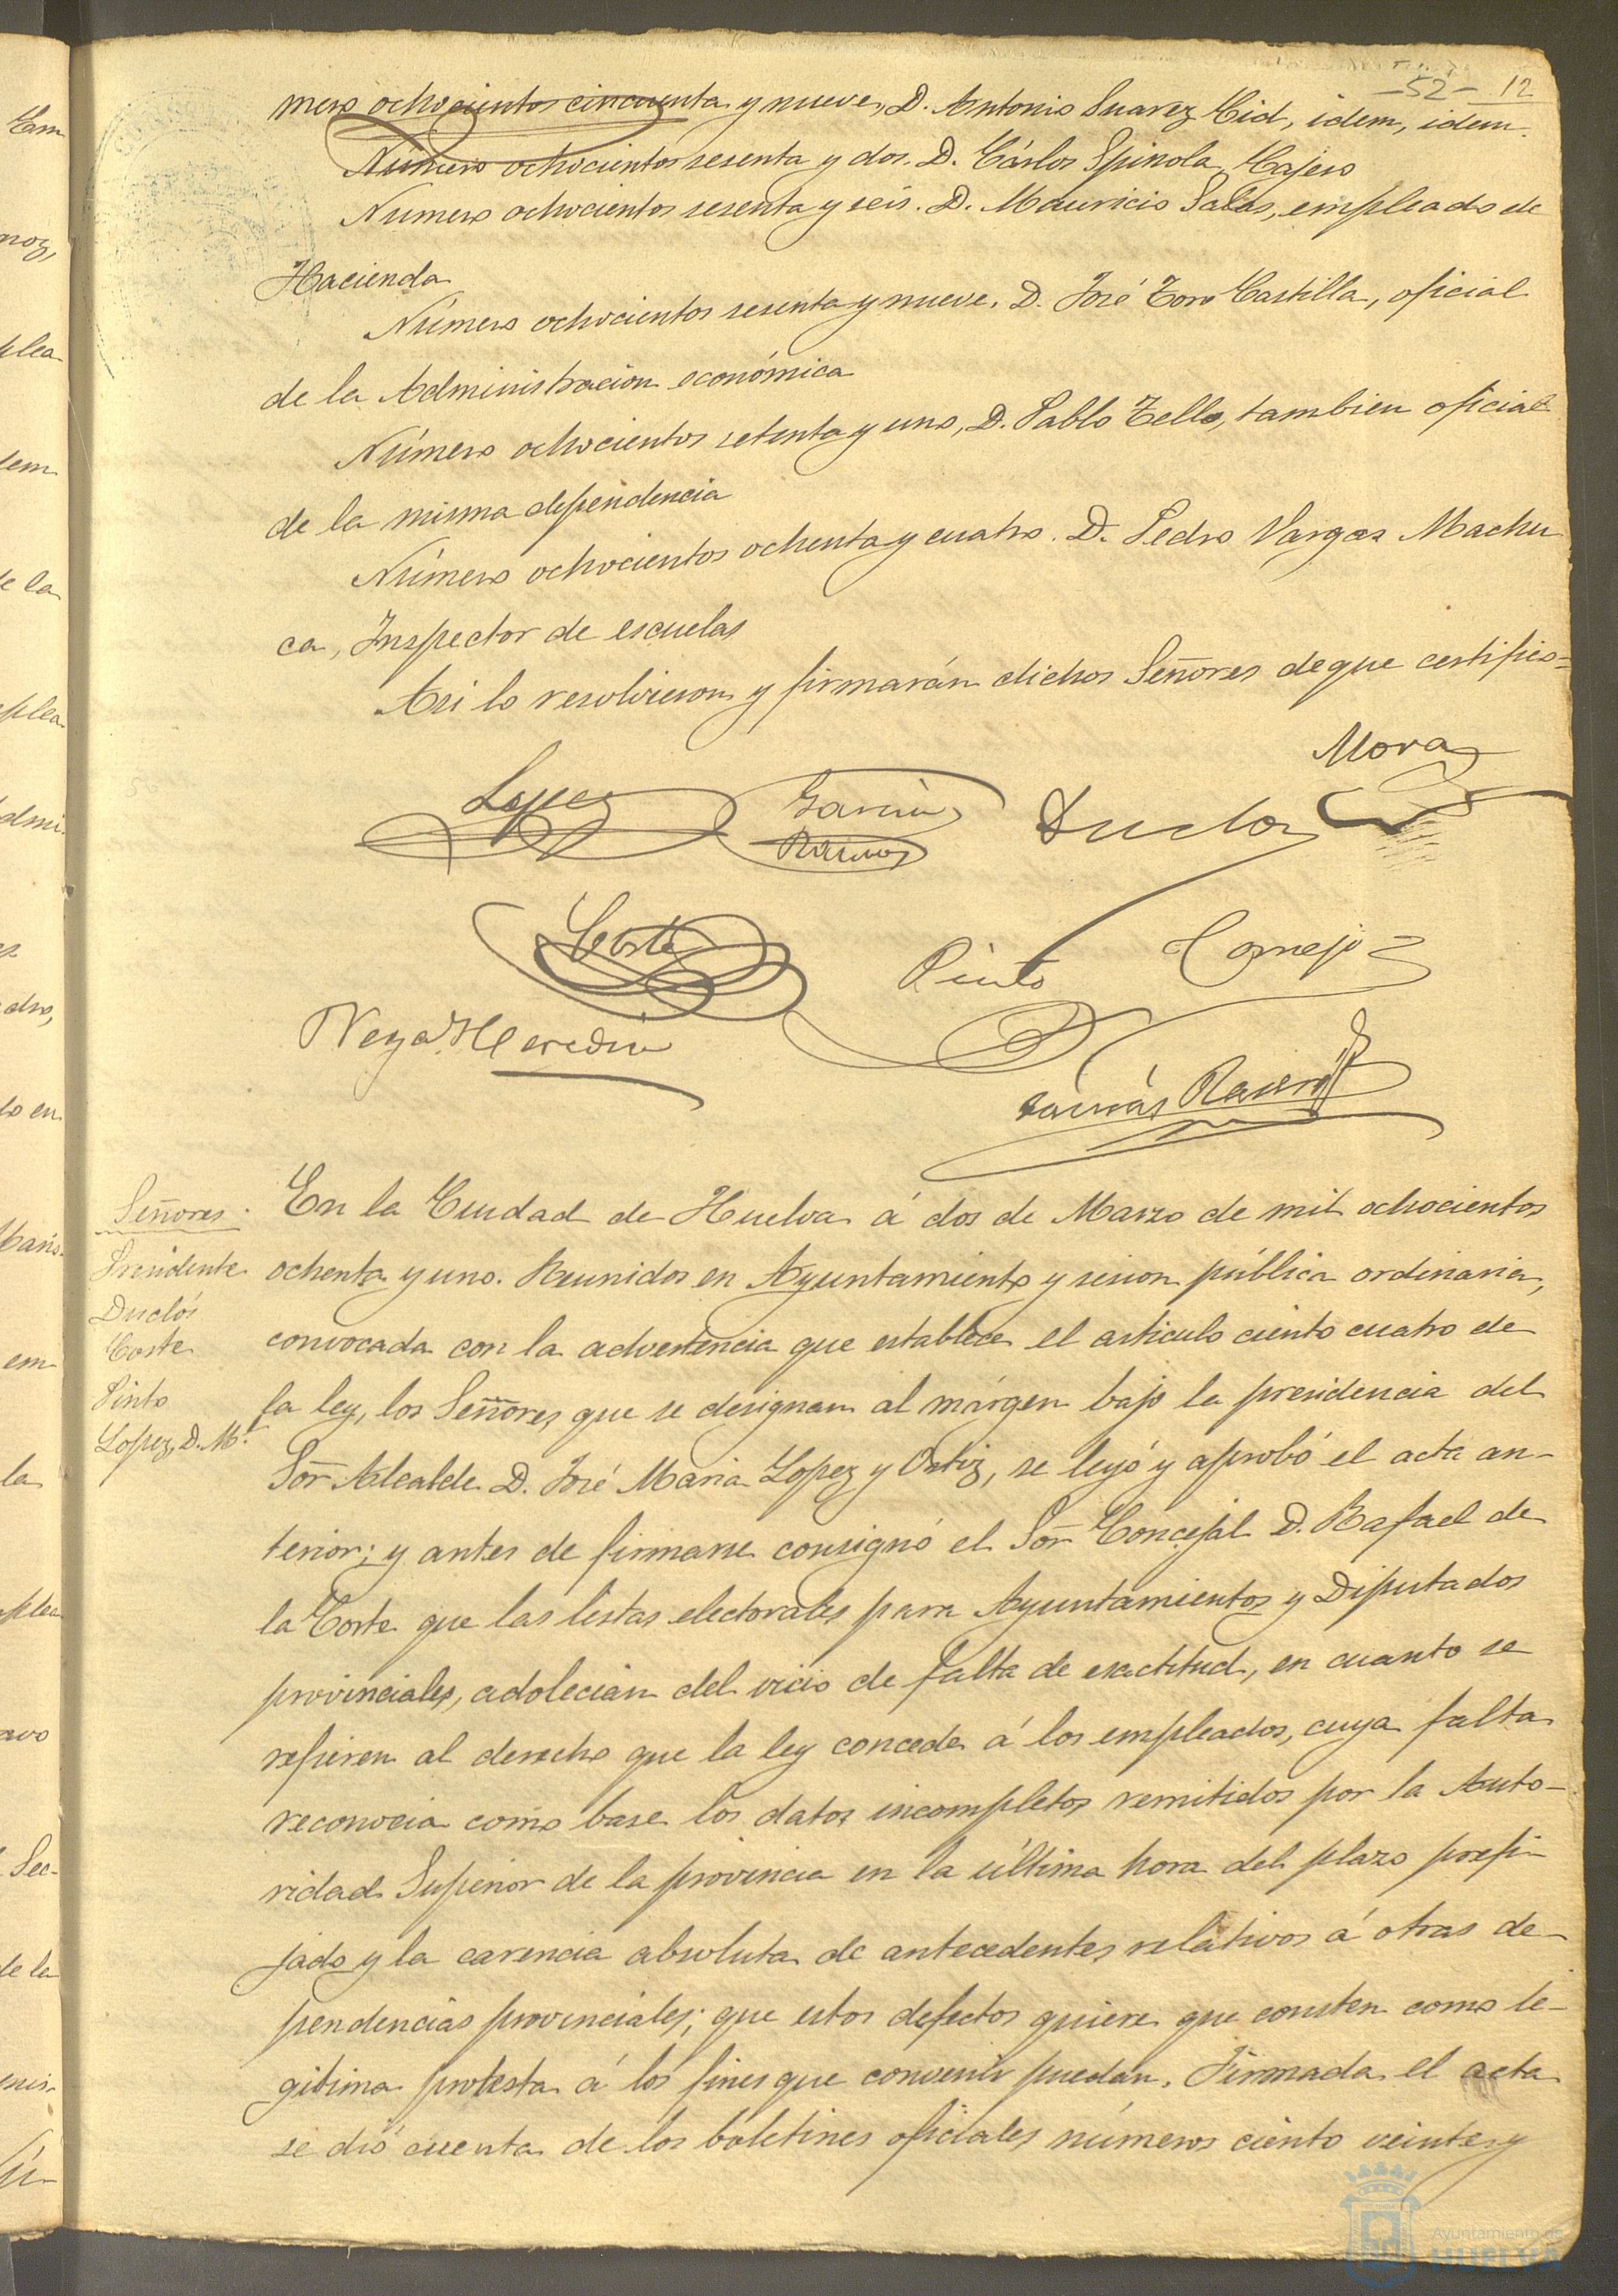 -52- 12
mero ochocientos cincuenta y nueve, D. Antonio Suarez Cid, idem, idem.
Número ochocientos sesenta y dos. D. Cárlos Spinola, Cajero
Número ochocientos sesenta y seis. D. Mauricio Salas, empleado de
Hacienda
Número ochocientos sesenta y nueve. D. José Toro Castilla, oficial
de la Administracion económica
Número ochocientos setenta y uno, D. Pablo Tello, tambien oficial
de la misma dependencia
Número ochocientos ochenta y cuatro. D. Pedro Vargas Machu
ca, Inspector de escuelas
Asi lo resolvieron y firmarán dichos Señores de que certifico=
Mora
Lopez
Garcia
Ramos
Duclos
Corte
Pinto
Cornejo
Vega Heredia
Tomás
Señores.
Presidente
Duclós
Corte
Pinto
Lopez, D. M.l
En la Ciudad de Huelva á dos de Marzo de mil ochocientos
ochenta y uno. Reunidos en Ayuntamiento y sesion pública ordinaria,
convocada con la advertencia que establece el articulo ciento cuatro de
la ley, los Señores que se designan al márgen bajo la presidencia del
Sor Alcalde D. José Maria Lopez y Ortiz, se leyó y aprobó el acta an-
terior; y antes de firmarse consignó el Sor Concejal D. Rafael de
la Corte que las listas electorales para Ayuntamientos y Diputados
provinciales, adolecian del vicio de falta de exactitud, en cuanto se
refieren al derecho que la ley concede á los empleados, cuya falta
reconocia como base los datos incompletos remitidos por la Auto-
ridad Superior de la provincia en la última hora del plazo prefi-
jado y la carencia absoluta de antecedentes relativos á otras de-
pendencias provinciales; que estos defectos quiere que consten como le-
gitima protesta á los fines que convenir puedan. Firmada el acta
se dió cuenta de los boletines oficiales números ciento veinte y
Ayuntamiento de
HUELVA